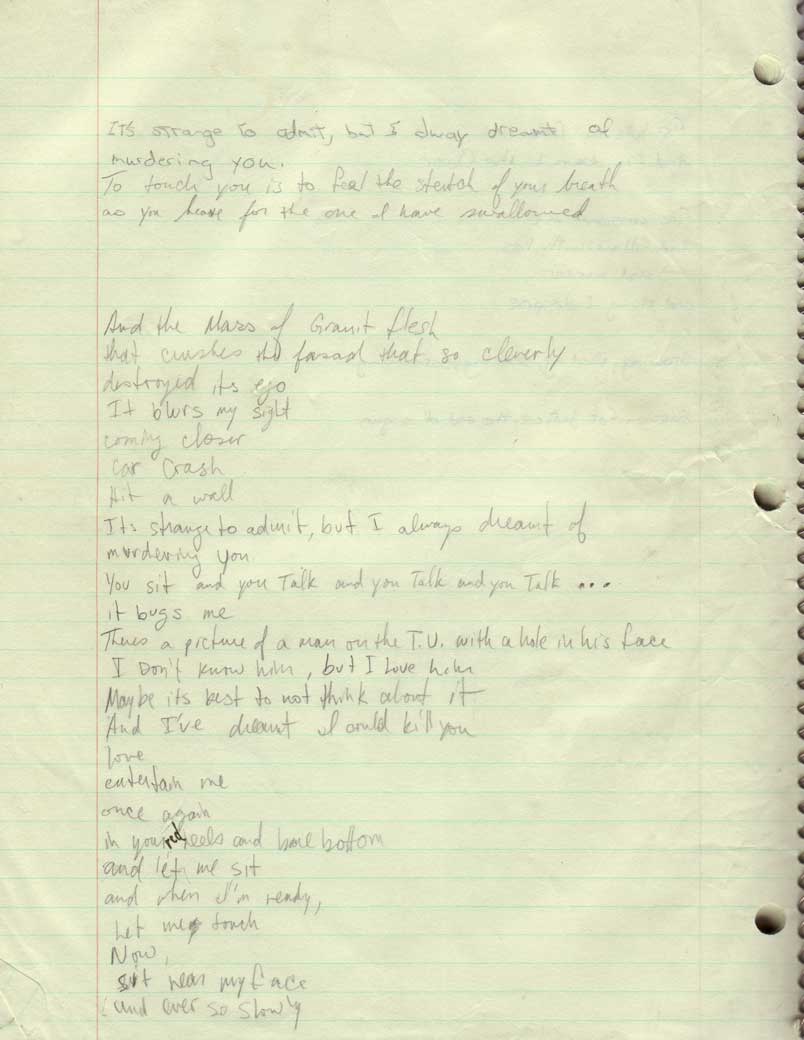 It's strange to admit, but I alway dreamt of
murdering you.
To touch you is to feel the stretch of your breath
as you heave for the one I have swallowed
And the Mass of Granit flesh
that crushes the fasad that so cleverly
destroyed its ego
It blurs my sight
coming closer
Car Crash
Hit a wall
Its strange to admit, but I always dreamt of
murdering you
You sit and you Talk and you Talk and you Talk ...
it bugs me
Theres a picture of a man on the T.V. with a hole in his face
I Don't know him, but I Love him
Maybe its best to not think about it
And I've dreamt I could kill you
love
entertain me
once again
in your red heels and bare bottom
and let me sit
and when I'm ready,
Let me touch
Now,
sit near my face
and ever so slowly